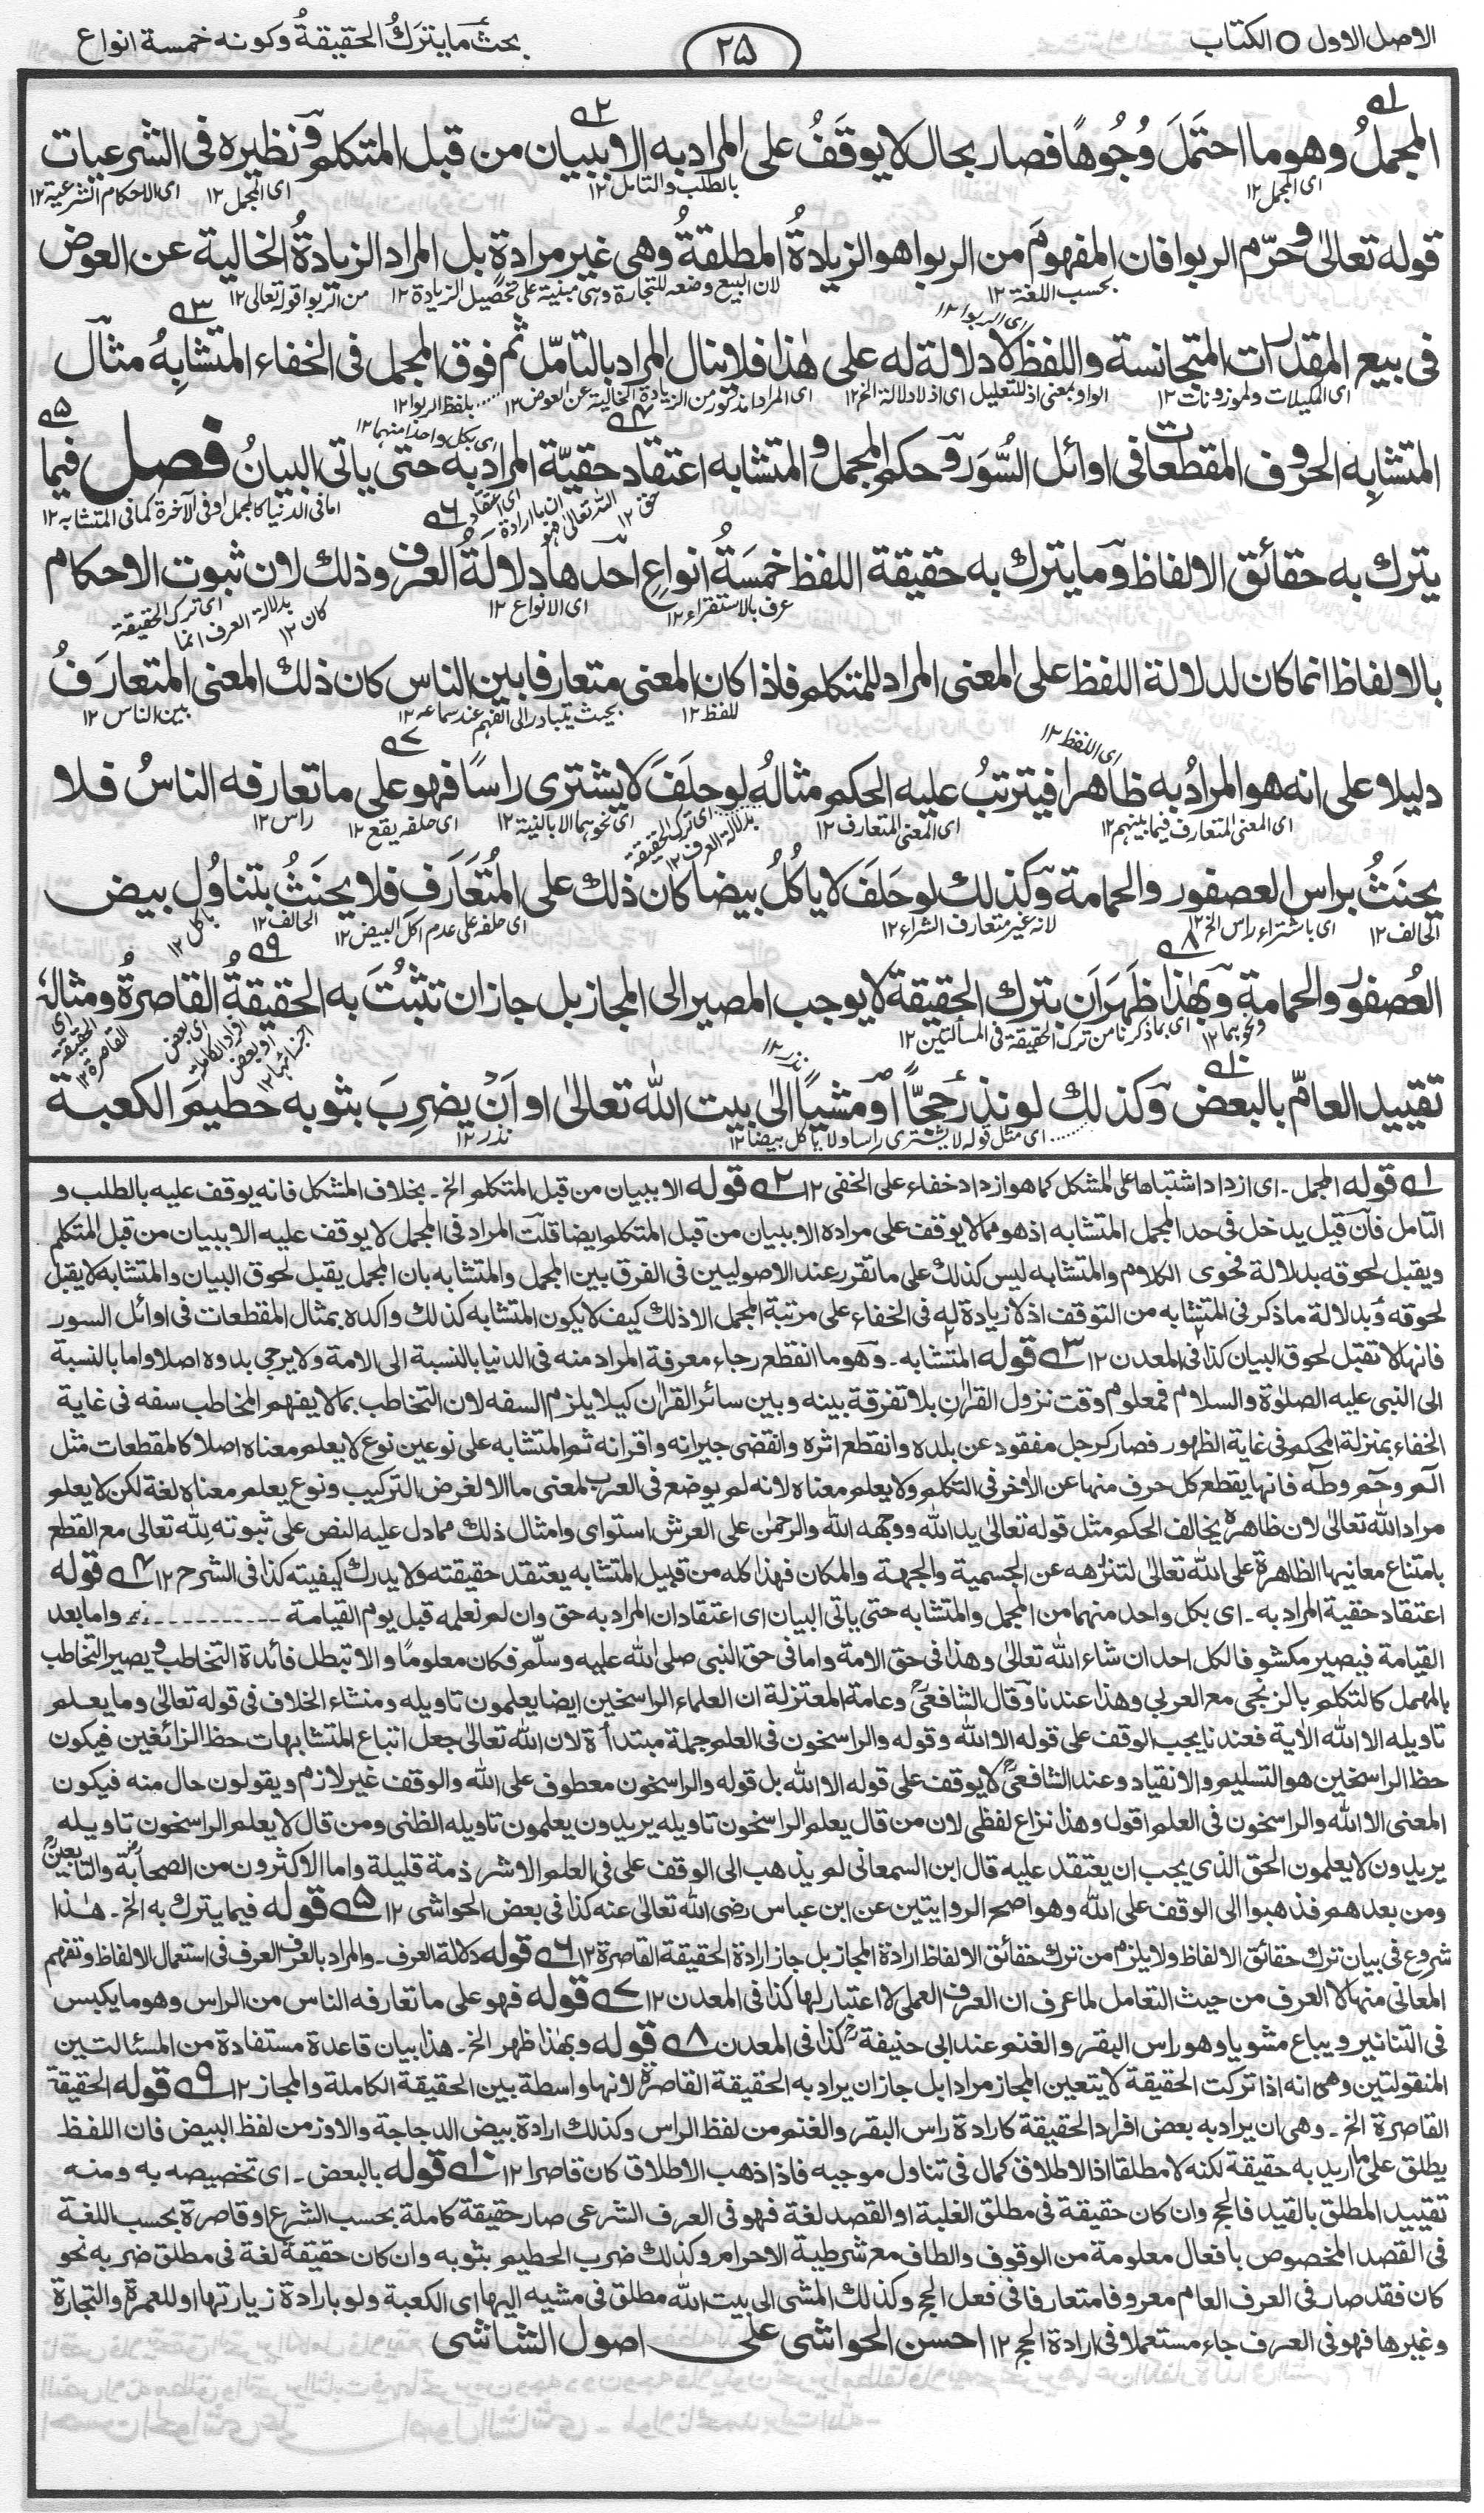 الاصل الاول ○ الكتاب
۲۵
بحث ما يترك الحقيقةُ وكونه خمسة انواع
المجملُ وهو ما احتَمَلَ وُجُوهًا فصار بحال لا يوقَفُ على المراد به الا ببيان من قبل المتكلم ونظيره فى الشرعيات
اى المجمل ۱۲ بالطلب والتامل ۱۲ اى المجمل ۱۲ اى الاحكام الشرعية ۱۲
قوله تعالىٰ وحرّم الربوا فان المفهومَ من الربوا هو الزيادةُ المطلقةُ وهى غير مرادةٍ بل المراد الزيادةُ الخالية عن العوض
بحسب اللغة ۱۲ لان البيع وضعه للتجارة وهى مبنية على تحصيل الزيادة ۱۲ من الربوا قوله تعالى ۱۲
اى الربوا ۱۲
فى بيع المقدرات المتجانسة واللفظ لا دلالة له على هٰذا فلا ينال المراد بالتامّل ثم فوق المجمل فى الخفاء المتشابِهُ مثال
اى المكيلات والموزونات ۱۲ الواو بمعنى اذ للتعليل اى اذ لا دلالة الخ ۱۲ اى المراد المذكور من الزيادة الخالية عن العوض ۱۲ بلفظ الربوا ۱۲
اى بكل واحد منهما ۱۲
المتشابِه الحروف المقطعات فى اوائل السُّوَر وحكم المجمل والمتشابه اعتقاد حقيّة المراد به حتى ياتى البيانُ فصل فيما
حق ۱۲ اى اعتقاد ان ما اراده الله تعالى هو اما فى الدنيا كالمجمل او فى الآخرة كما فى المتشابه ۱۲
يترك به حقائق الالفاظ وما يترك به حقيقة اللفظ خمسَةُ انواعٍ احدها دلالَةُ العرف وذلك لان ثبوت الاحكام
عرف بالاستقراء ۱۲ اى الانواع ۱۲ كان ۱۲ اى ترك الحقيقة بدلالة العرف انما
بالالفاظ انما كان لدلالة اللفظ على المعنى المراد للمتكلم فاذا كان المعنى متعارفا بين الناس كان ذلك المعنى المتعارَفُ
للفظ ۱۲ بحيث يتبادر الى الفهم عند سماعه ۱۲ بين الناس ۱۲
اى اللفظ ۱۲
دليلا على انه هو المرادُ به ظاهرا فيترتبُ عليه الحكم مثالُهُ لو حلَفَ لا يشترى راسًا فهو على ما تعارفه الناسُ فلا
اى المعنى المتعارف فيما بينهم ۱۲ اى المعنى المتعارف ۱۲ اى ترك الحقيقة بدلالة العرف ۱۲ اى نحوهما الا بالنية ۱۲ اى حلفه يقع ۱۲ راس ۱۲
يحنَثُ براس العصفور والحمامة وكذلك لو حَلَفَ لا ياكُلُ بيضا كان ذلك على المُتَعَارَف فلا يحنَثُ بتناوُل بيض
الحالف ۱۲ اى باشتراء راس الخ ۱۲ لانه غير متعارف الشراء ۱۲ اى حلفه على عدم اكل البيض ۱۲ الحالف ۱۲ باكل ۱۲
العُصفور والحمامة وبهٰذا ظَهَرَ اَن بترك الحقيقة لا يوجب المصير الى المجاز بل جاز ان تثبُتَ به الحقيقةُ القاصرةُ ومثالهٗ
ونحوهما ۱۲ اى بما ذكرنا من ترك الحقيقة فى المسألتين ۱۲ اى بعض افراد الكاملة او بعض اجزائها ۱۲ اى الحقيقة القاصرة ۱۲
نذر ۱۲
تقييد العامّ بالبعض وكذلك لو نذر حجًّا او مشيًا الىٰ بيت الله تعالىٰ او اَنْ يضرِبَ بثوبه حطيمَ الكعبة
اى مثل قوله لا يشترى راسا ولا ياكل بيضا ۱۲ نذر ۱۲
۱ قوله المجمل ـ اى ازداد اشتباها على المشكل كما هو ازداد خفاء على الخفى ۱۲ ۲ قوله الا ببيان من قبل المتكلم الخ ـ بخلاف المشكل فانه يوقف عليه بالطلب و
التامل فان قيل يدخل فى حد المجمل المتشابه اذ هو مما لا يوقف على مراده الا ببيان من قبل المتكلم ايضا قلت المراد فى المجمل لا يوقف عليه الا ببيان من قبل المتكلم
ويقبل لحوقه بدلالة فحوى الكلام والمتشابه ليس كذلك على ما تقرر عند الاصوليين فى الفرق بين المجمل والمتشابه بان المجمل يقبل لحوق البيان والمتشابه لا يقبل
لحوقه وبدلالة ما ذكر فى المتشابه من التوقف اذ لا زيادة له فى الخفاء على مرتبة المجمل الا ذلك كيف لا يكون المتشابه كذلك واكده بمثال المقطعات فى اوائل السور
فانها لا تقبل لحوق البيان كذا فى المعدن ۱۲ ۳ قوله المتشابه ـ وهو ما انقطع رجاء معرفة المراد منه فى الدنيا بالنسبة الى الامة ولا يرجى بدوه اصلا واما بالنسبة
الى النبى عليه الصلوٰة والسلام فمعلوم وقت نزول القراٰن بلا تفرقة بينه وبين سائر القراٰن كيلا يلزم السفه لان التخاطب بما لا يفهم المخاطب سفه فى غاية
الخفاء بمنزلة المحكم فى غاية الظهور فصار كرجل مفقود عن بلده وانقطع اثره وانقضى جيرانه واقرانه ثم المتشابه على نوعين نوع لا يعلم معناه اصلا كالمقطعات مثل
الٓمٓ وحٰمٓ وطٰهٰ فانها يقطع كل حرف منها عن الاٰخر فى التكلم ولا يعلم معناه لانه لم يوضع فى العرب لمعنى ما الا لغرض التركيب ونوع يعلم معناه لغة لكن لا يعلم
مراد الله تعالىٰ لان ظاهره يخالف الحكم مثل قوله تعالىٰ يد الله ووجهه الله والرحمٰن على العرش استوٰى وامثال ذلك مما دل عليه النص على ثبوته لله تعالى مع القطع
بامتناع معانيها الظاهرة على الله تعالىٰ لتنزهه عن الجسمية والجهة والمكان فهذا كله من قبيل المتشابه يعتقد حقيقته ولا يدرك كيفيته كذا فى الشرح ۱۲ ۴ قوله
اعتقاد حقية المراد به ـ اى بكل واحد منهما من المجمل والمتشابه حتى ياتى البيان اى اعتقاد ان المراد به حق وان لم نعلمه قبل يوم القيامة واما بعد
القيامة فيصير مكشوفا لكل احد ان شاء الله تعالىٰ وهذا فى حق الامة واما فى حق النبى صلى الله عليه وسلم فكان معلومًا والا تبطل فائدة التخاطب فيصير التخاطب
بالمهمل كالتكلم بالزنجى مع العربى وهذا عندنا وقال الشافعى وعامة المعتزلة ان العلماء الراسخين ايضا يعلمون تاويله ومنشاء الخلاف فى قوله تعالىٰ وما يعلم
تاويله الا الله الاٰية فعندنا يجب الوقف على قوله الا الله وقوله والراسخون فى العلم جملة مبتدأة لان الله تعالىٰ جعل اتباع المتشابهات حظ الزائغين فيكون
حظ الراسخين هو التسليم والانقياد وعند الشافعى لا يوقف على قوله الا الله بل قوله والراسخون معطوف على الله والوقف غير لازم ويقولون حال منه فيكون
المعنى الا الله والراسخون فى العلم اقول وهذا نزاع لفظى لان من قال يعلم الراسخون تاويله يريدون يعلمون تاويله الظنى ومن قال لا يعلم الراسخون تاويله
يريدون لا يعلمون الحق الذى يجب ان يعتقد عليه قال ابن السمعانى لم يذهب الى الوقف على فى العلم الا شرذمة قليلة واما الاكثرون من الصحابة والتابعين
ومن بعدهم فذهبوا الى الوقف على الله وهو اصح الروايتين عن ابن عباس رضى الله تعالىٰ عنه كذا فى بعض الحواشى ۱۲ ۵ قوله فيما يترك به الخ ـ هٰذا
شروع فى بيان ترك حقائق الالفاظ ولا يلزم من ترك حقائق الالفاظ ارادة المجاز بل جاز ارادة الحقيقة القاصرة ۱۲ ۶ قوله دلالة العرف ـ والمراد بالعرف العرف فى استعمال الالفاظ وتفهم
المعانى منها لا العرف من حيث التعامل لما عرف ان العرف العملى لا اعتبار لها كذا فى المعدن ۱۲ ۷ قوله فهو على ما تعارفه الناس من الراس وهو ما يكبس
فى التنانير ويباع مشويا وهو راس البقر والغنم عند ابى حنيفة كذا فى المعدن ۸ قوله وبهٰذا ظهر الخ ـ هذا بيان قاعدة مستفادة من المسئالتين
المنقولتين وهى انه اذا تركت الحقيقة لا يتعين المجاز مرادا بل جاز ان يراد به الحقيقة القاصرة لانها واسطة بين الحقيقة الكاملة والمجاز ۱۲ ۹ قوله الحقيقة
القاصرة الخ ـ وهى ان يراد به بعض افراد الحقيقة كارادة راس البقر والغنم من لفظ الراس وكذلك ارادة بيض الدجاجة والاوز من لفظ البيض فان اللفظ
يطلق على ما اريد به حقيقة لكنه لا مطلقا اذ الاطلاق كمال فى تناول موجبه فاذا ذهب الاطلاق كان قاصرا ۱۲ ۱۰ قوله بالبعض ـ اى تخصيصه به ومنه
تقييد المطلق بالقيد فالحج وان كان حقيقة فى مطلق الغلبة او القصد لغة فهو فى العرف الشرعى صار حقيقة كاملة بحسب الشرع او قاصرة بحسب اللغة
فى القصد المخصوص بافعال معلومة من الوقوف والطاف مع شرطية الاحرام وكذلك ضرب الحطيم بثوبه وان كان حقيقة لغة فى مطلق ضربه نحو
كان فقد صار فى العرف العام معروفا متعارفا فى فعل الحج وكذلك المشى الى بيت الله مطلق فى مشيه اليها اى الكعبة ولو بارادة زيارتها او للعمرة والتجارة
وغيرها فهو فى العرف جاء مستعملا فى ارادة الحج ۱۲ احسن الحواشى على اصول الشاشى